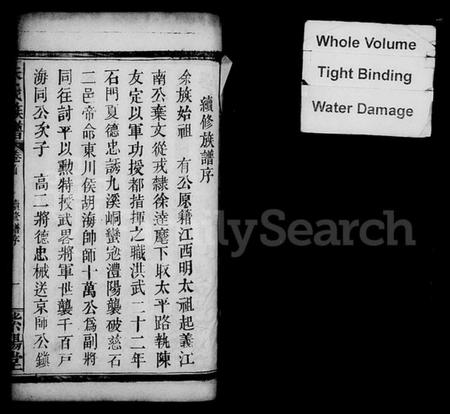 續修族譜序
余族始祖 有公原籍江西明太祖起義江
南公棄文從戎隸徐達麾下取太平路執陳
友定以軍功授都指揮之職洪武二十二年
石門夏德忠誘九溪峒蠻寇澧陽襲破慈石
二邑帝命東川侯胡海帥師十萬公為副將
同往討平以勲特授武畧將軍世襲千百戶
海同公次子 高二將德忠械送京師公鎮
族譜
卷首
續修譜序
一
紫陽堂
Whole Volume
Tight Binding
Water Damage
FamilySearch